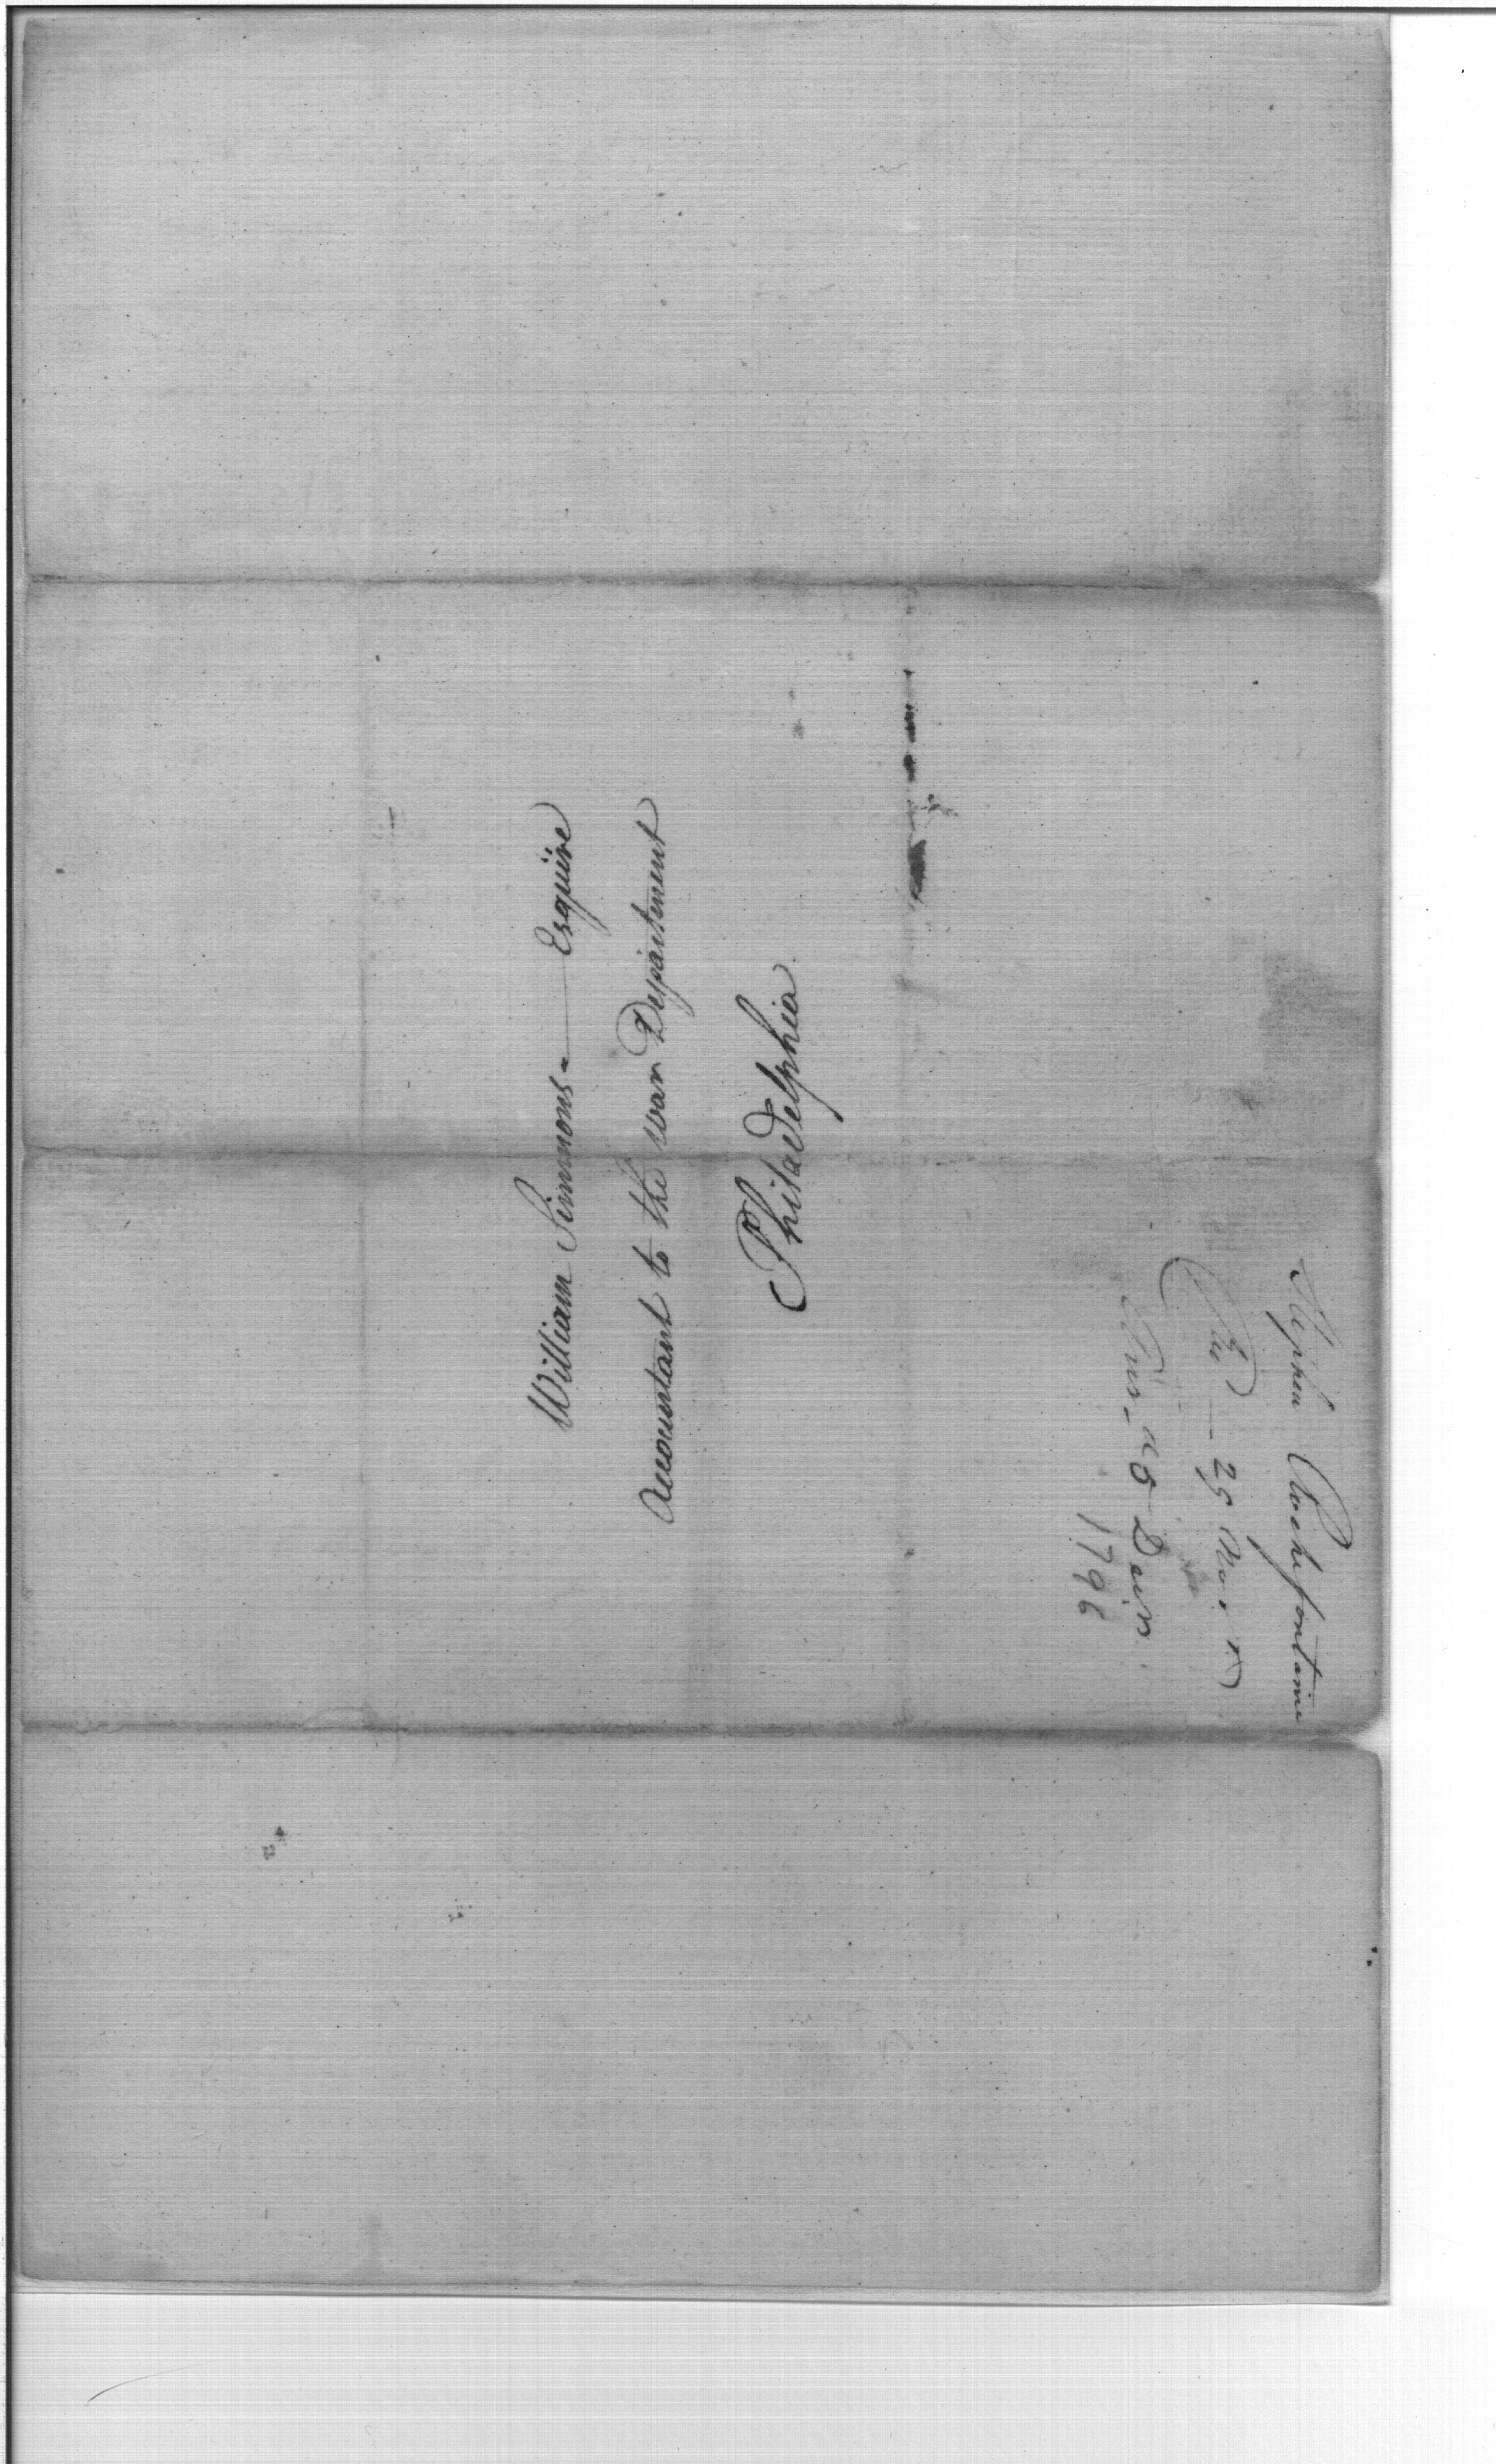 William Simmons - Esquire
Accountant to the war Department
Philadelphia
Stephen Rochefontaine
25
1796